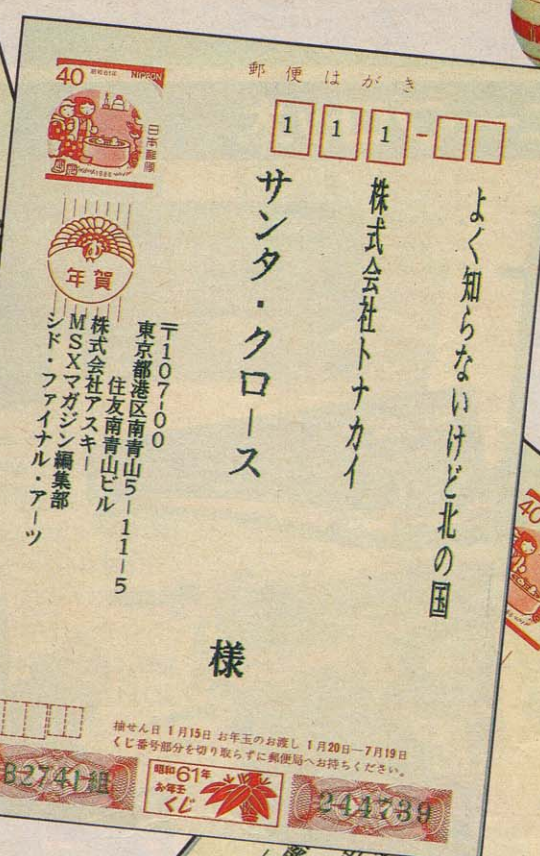 郵便はがき
40
昭和61年
NIPPON
日本郵便
年賀
111-
よく知らないけど北の国
株式会社トナカイ
サンタ・クロース
様
〒107-00
東京都港区南青山5-11-5
住友南青山ビル
株式会社アスキー
MSXマガジン編集部
シド・ファイナル・アーツ
抽せん日 1月15日 お年玉のお渡し 1月20日—7月19日
くじ番号部分を切り取らずに郵便局へお持ちください。
B2741組
昭和61年
お年玉
くじ
244739
40